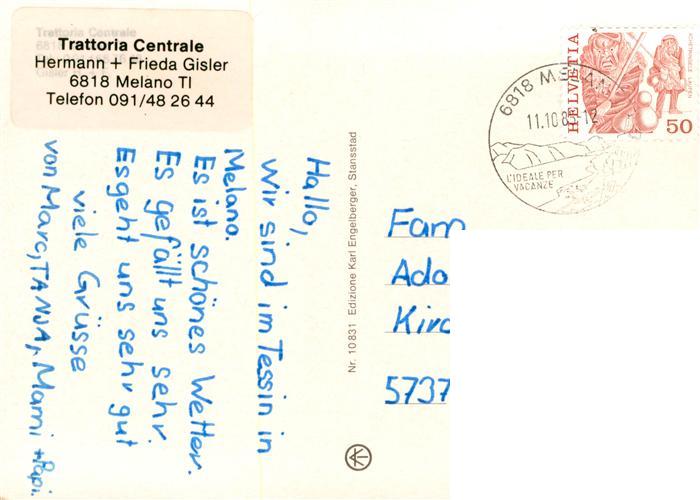 Trattoria Centrale
Hermann + Frieda Gisler
6818 Melano TI
Telefon 091/48 26 44
Hallo,
Wir sind im Tessin in
Melano.
Es ist schönes Wetter.
Es gefällt uns sehr.
Es geht uns sehr gut
viele Grüsse
von Marc, TANJA, Mami + Papi.
Nr. 10831 Edizione Karl Engelberger, Stansstad
HELVETIA
50
6818
11.10.8
L'IDEALE PER
VACANZE
Fam
Ado
Kirc
5737